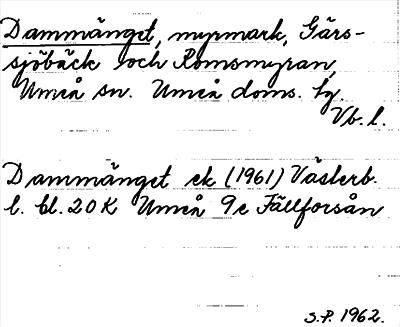 Dammänget, myrmark, Gärs-
sjöbäck och Romsmyran,
Umeå sn. Umeå doms. hg.
Vb. l.
Dammänget ek (1961) Västerb.
l. bl. 20 K Umeå 9c Fällforsån
S.P. 1962.